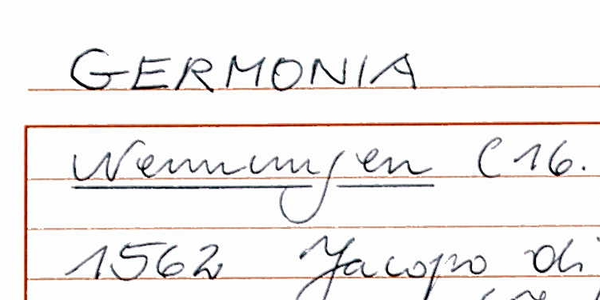 GERMONIA
Nennungen (16.
1562 Jacopo di